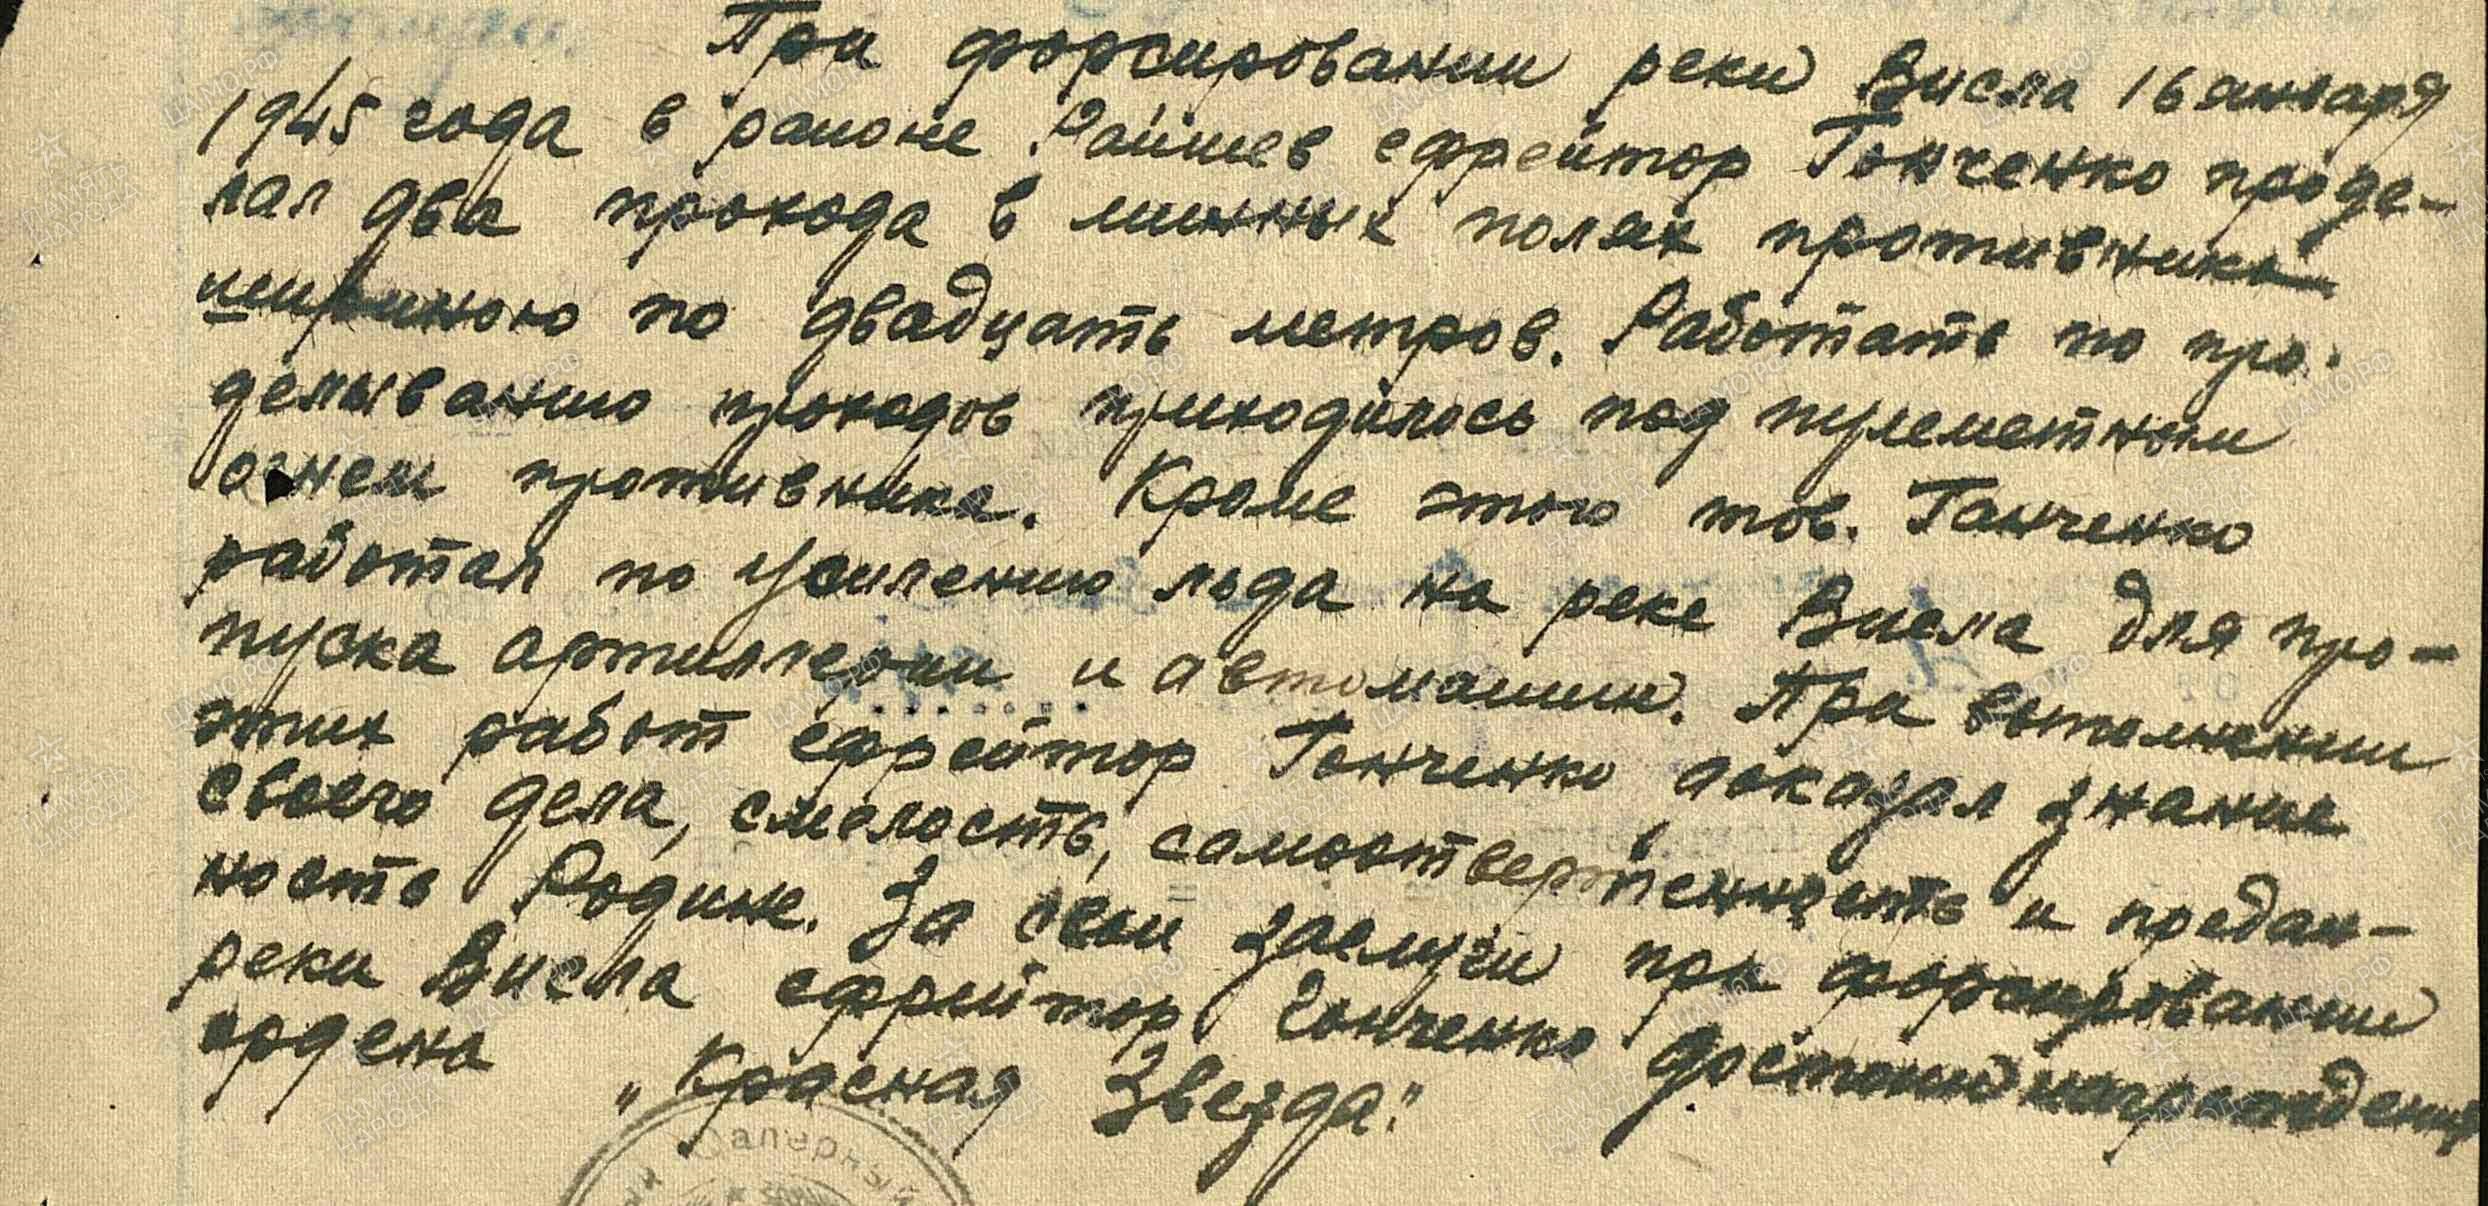 При форсировании реки Висла 16 января
1945 года в районе Райшев ефрейтор Гонченко проде-
лал два прохода в минных полях противника
шириною по двадцать метров. Работать по про-
делыванию проходов приходилось под пулеметным
огнем противника. Кроме этого тов. Ганченко
работал по усилению льда на реке Висла для про-
пуска артиллерии и автомашин. При выполнении
этих работ ефрейтор Гонченко доказал знание
своего дела, смелость, самоотверженность и предан-
ность Родине. За свои заслуги при форсировании
реки Висла ефрейтор Гонченко достоин награждения
ордена „Красная Звезда."
Саперный